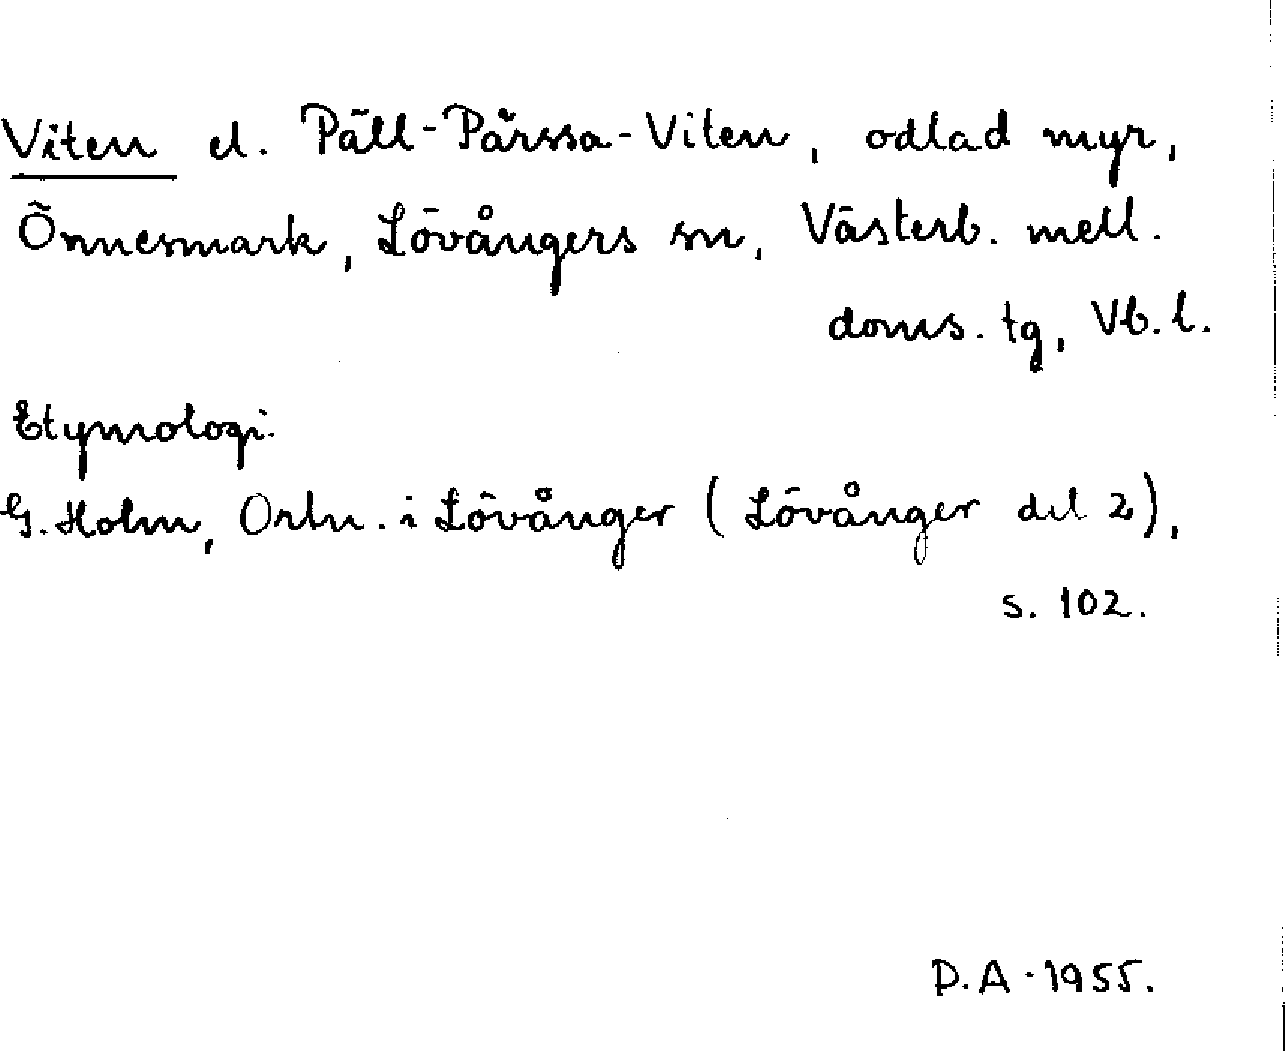 Viten el. Päll-Pärssa-Viten, odlad myr,
Önnesmark, Lövångers sn, Västerb. mell.
doms. tg, Vb. l.
Etymologi.
G. Holm, Ortn. i Lövånger (Lövånger del 2),
s. 102.
D.A. 1955.